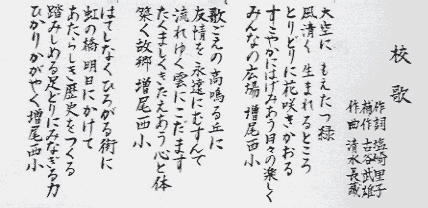 校歌
作詞 塩崎里子
補作 古谷武雄
作曲 清水長蔵
大空に もえたつ緑
風清く 生まれるところ
とりどりに花咲きかおる
すこやかにはげみあう日々の楽しく
みんなの広場 増尾西小
歌ごえの高鳴る丘に
友情を永遠にむすんで
流れゆく雲にこだます
たくましくきたえあう心と体
築く故郷 増尾西小
はてしなくひろがる街に
虹の橋 明日にかけて
あたらしき歴史をつくる
踏みしめる足どりにみなぎる力
ひかりかがやく 増尾西小